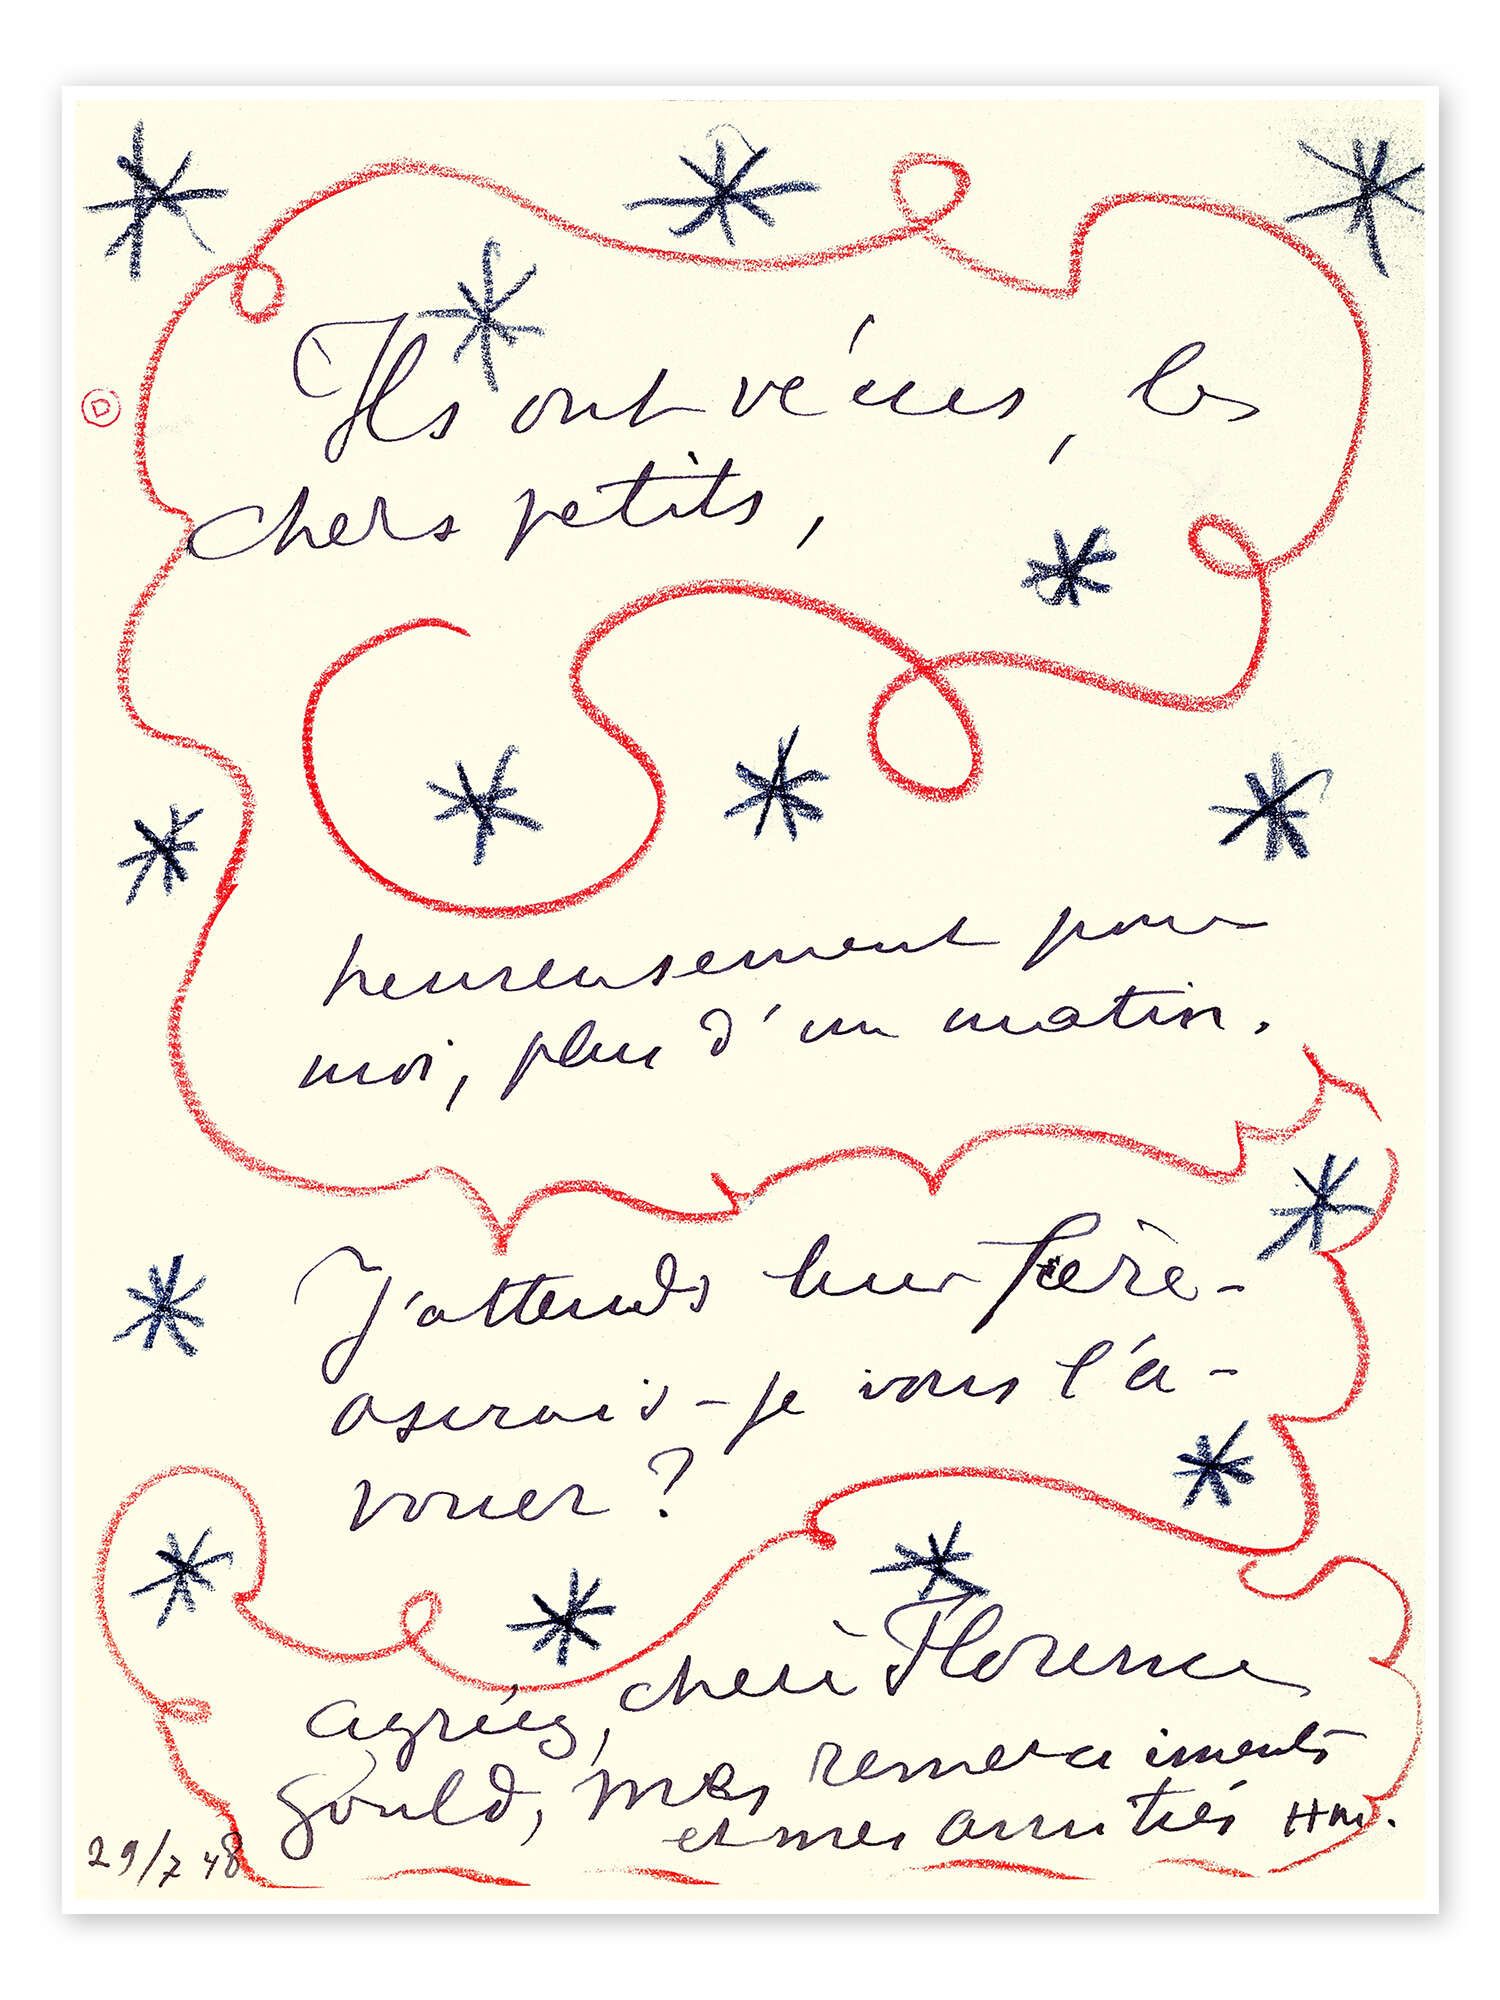 Ils ont vécus, les
chers petits,
heureusement pour
moi, plus d'un matin.
J'attends leur père -
oserais-je vous l'a-
vouer ?
agréez, chère Florence
Gould, mes remerciments
et mes amitiés HM.
29/7 48
D